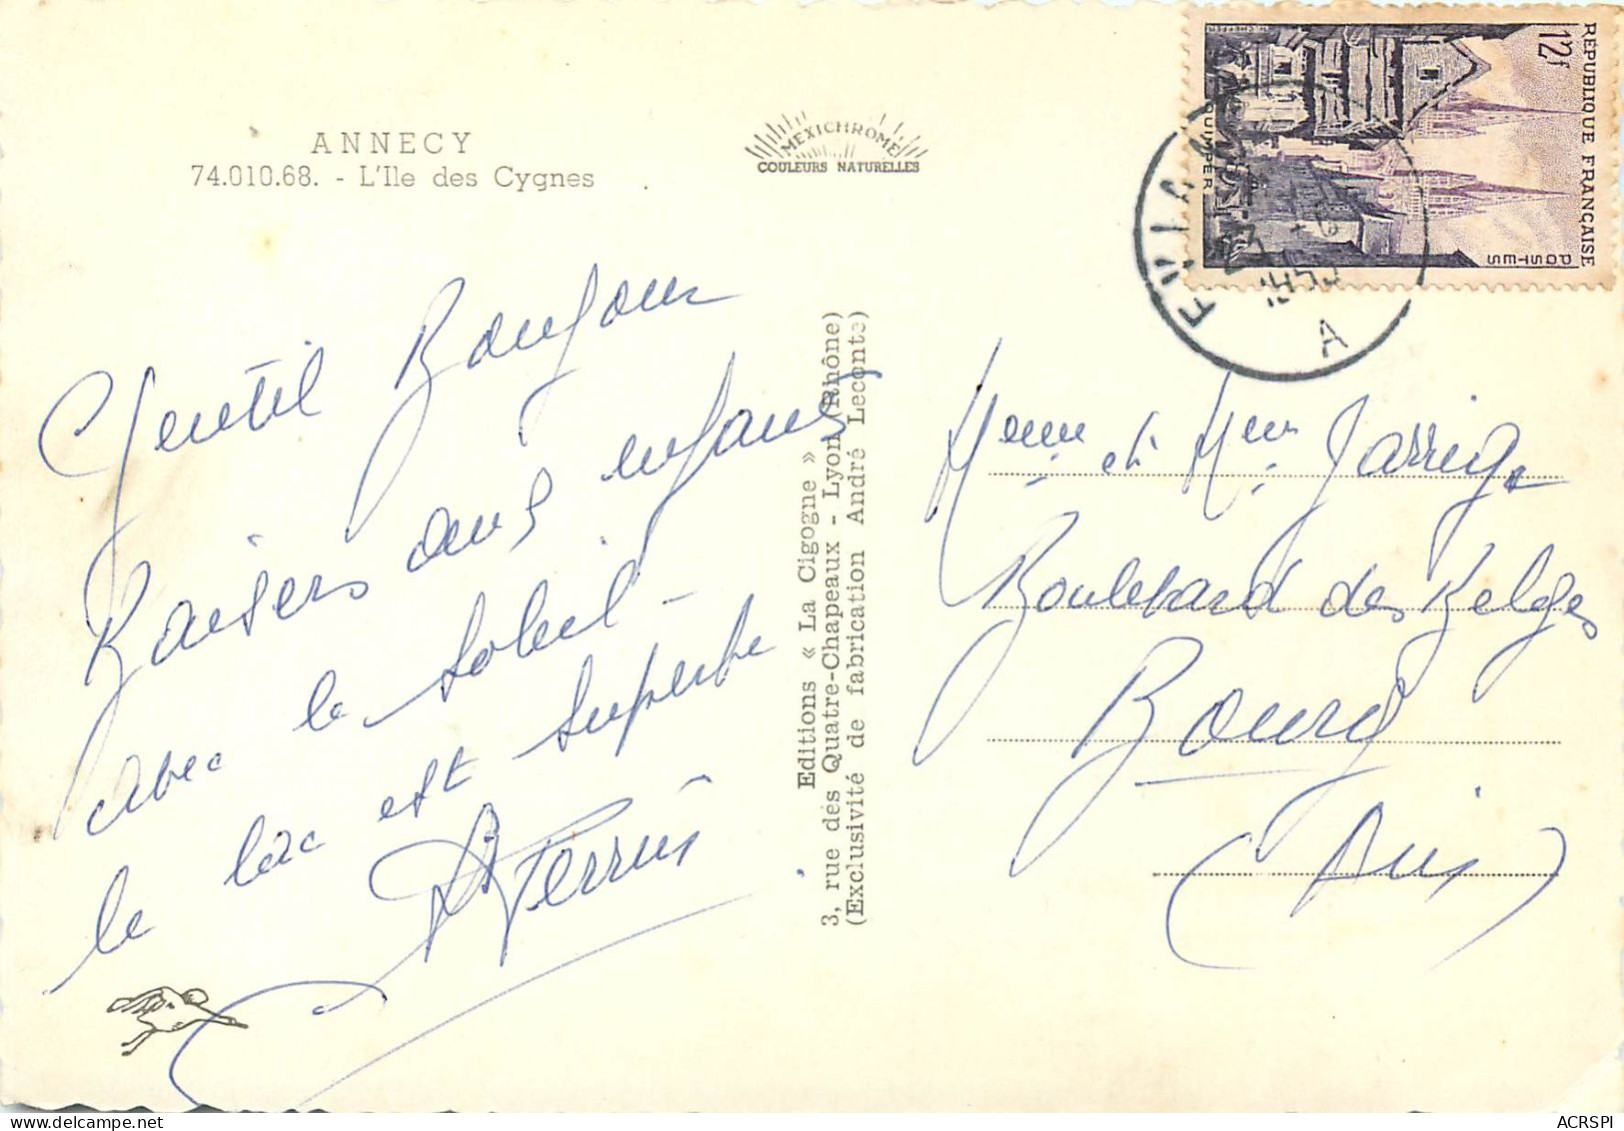 ANNECY
74.010.68. - L'Ile des Cygnes
MEXICHROME
COULEURS NATURELLES
Gentil Bonjour
Baisers aux enfants
avec le soleil -
le lac est superbe
Perrin
Editions « La Cigogne »
3, rue des Quatre-Chapeaux - Lyon (Rhône)
(Exclusivité de fabrication André Leconte)
RÉPUBLIQUE FRANÇAISE
12f
POSTES
QUIMPER
EVIAN
23
A
et Jarrige
Boulevard des Belges
Bourg
(Ain)
ACRSPI